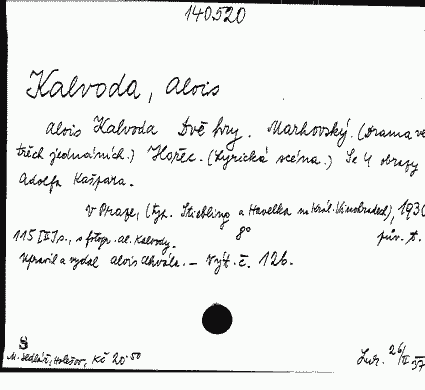 140520
Kalvoda, Alois
Alois Kalvoda Dvě hry. Markovský. (Drama ve
třech jednáních.) Hořec. (Lyrická scéna.) Se 4 obrazy
Adolfa Kašpara.
V Praze, (Typ. Stiebling a Havelka na Král. Vinohradech), 1930
115 [IV] s., s fotogr. Al. Kalvody. 8° pův. t.
Upravil a vydal Alois Chvála. – Výt. č. 126.
S
M. Sedlář, Holešov, Kč 20.50
26/II 37